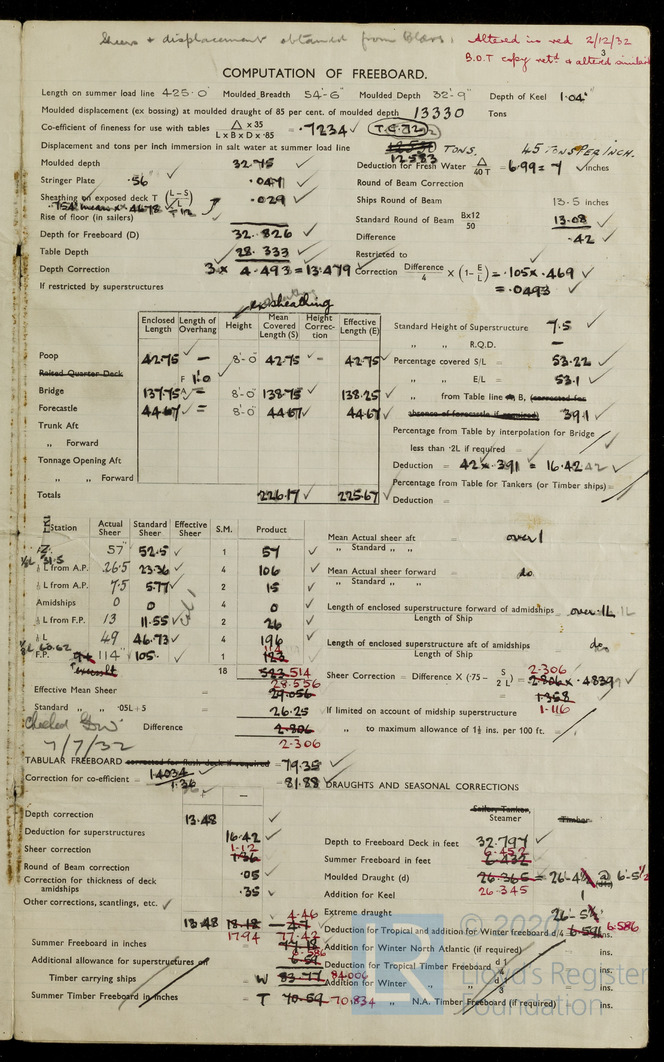 Sheer & displacement obtained from Blders.
Altered in red 2/12/32
B.O.T copy retd & altered
COMPUTATION OF FREEBOARD.
Length on summer load line 425·0' Moulded Breadth 54'-6" Moulded Depth 32'-9" Depth of Keel 1·04"
Moulded displacement (ex bossing) at moulded draught of 85 per cent. of moulded depth 13330 Tons
Co-efficient of fineness for use with tables △ x 35 / L x B x D x ·85 = ·7234
Displacement and tons per inch immersion in salt water at summer load line 12583 TONS, 45 TONS PER INCH.
Moulded depth 32.75 Deduction for Fresh Water △ / 40 T = 6.99 = 7 inches
Stringer Plate ·56" ·047 Round of Beam Correction
Sheathing on exposed deck T (L–S / L) ·029 Ships Round of Beam 13·5 inches
Rise of floor (in sailers) Standard Round of Beam Bx12 / 50 13·08
Depth for Freeboard (D) 32.826 Difference ·42
Table Depth 28.333 Restricted to
Depth Correction 3 x 4.493 = 13.479 Correction Difference / 4 x (1– E / L) = ·105 x ·469
If restricted by superstructures = ·0493
ex sheathing
Enclosed Length Length of Overhang Height Mean Covered Length (S) Height Correction Effective Length (E)
Standard Height of Superstructure 7.5
" " R.Q.D. –
Poop 42.75 – 8'-0" 42.75 – 42.75 Percentage covered S/L = 53.22
Raised Quarter Deck F 1'0 " " E/L = 53.1
Bridge 137.75 A – 8'-0" 138.75 138.25 " from Table line B, (corrected for
Forecastle 44.67 = 8'-0" 44.67 44.67 absence of forecastle if required) 39.1
Trunk Aft Percentage from Table by interpolation for Bridge
" Forward less than ·2L if required =
Tonnage Opening Aft Deduction = 42 x ·391 = 16.42
" " Forward Percentage from Table for Tankers (or Timber ships) =
Totals 226.17 225.67 Deduction =
Station Actual Sheer Standard Sheer Effective Sheer S.M. Product
57" 52.5 1 57 Mean Actual sheer aft / " Standard " " = over 1
L from A.P. 26.5 23.36 4 106 Mean Actual sheer forward / " Standard " " = do
L from A.P. 7.5 5.77 2 15
Amidships 0 0 4 0 Length of enclosed superstructure forward of amidships / Length of Ship = over ·1L
L from F.P. 13 11.55 2 26
L 49 46.73 4 196 Length of enclosed superstructure aft of amidships / Length of Ship = do
F.P. 114" 105 1 114
18 514 Sheer Correction = Difference X (·75 – S / 2 L) = 2.306 x ·4839
Effective Mean Sheer = 28.556 = 1.116
Standard " " ·05L+5 = 26.25 If limited on account of midship superstructure =
Checked
7/7/32
Difference 2.306 " to maximum allowance of 1½ ins. per 100 ft. =
TABULAR FREEBOARD corrected for flush deck if required = 79.35
Correction for co-efficient = 1.4034 / 1.36 = 81.88 DRAUGHTS AND SEASONAL CORRECTIONS
+ –
Sailer, Tanker, Steamer Timber
Depth correction 13.48
Deduction for superstructures 16.42 Depth to Freeboard Deck in feet 32.797
Sheer correction 1.12 Summer Freeboard in feet 6.452
Round of Beam correction ·05 Moulded Draught (d) 26.345 = 26-4½ @ 6-5½
Correction for thickness of deck amidships ·35 Addition for Keel 1
Other corrections, scantlings, etc. Extreme draught 26-5½
13.48 17.94 – 4.46 Deduction for Tropical and addition for Winter freeboard d/4 6.586 ins.
Summer Freeboard in inches 77.42 Addition for Winter North Atlantic (if required) ins.
Additional allowance for superstructures on 6.586 Deduction for Tropical Timber Freeboard d / 4 ins.
Timber carrying ships W 84.006 Addition for Winter " " d / 3 = ins.
Summer Timber Freeboard in inches T 70.834 " N.A. Timber Freeboard (if required) ins.
© 2020
Lloyd's Register
Foundation